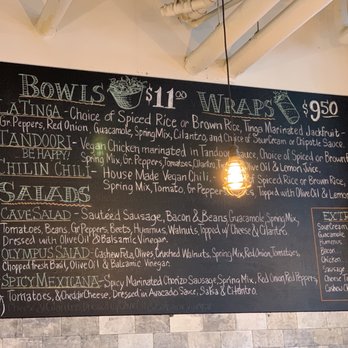 BOWLS $11.00 WRAPS $9.50
LATINGA - Choice of Spiced Rice or Brown Rice, Tinga Marinated Jackfruit -
Gr. Peppers, Red Onion, Guacamole, Spring Mix, Cilantro, and Choice of Sour Cream or Chipotle Sauce.
TANDOORI - Vegan Chicken marinated in Tandoori Sauce, Choice of Spiced or Brown
BE HAPPY! Spring Mix, Gr. Peppers, Tomatoes, Cilantro, Olive Oil & Lemon Juice,
CHILIN CHILI - House Made Vegan Chili Spiced Rice or Brown Rice,
Spring Mix, Tomato, Gr. Peppers Topped with Olive Oil & Lemon
SALADS
CAVE SALAD - Sautéed Sausage, Bacon & Beans, Guacamole, Spring Mix,
Tomatoes, Beans, Gr. Peppers, Beets, Hummus, Walnuts, Topped w/ Cheese & Cilantro,
Dressed with Olive Oil & Balsamic Vinegar.
OLYMPUS SALAD - Cashew Feta, Olives, Crushed Walnuts, Spring Mix, Red Onion, Tomatoes,
Chopped fresh Basil, Olive Oil & Balsamic Vinegar.
SPICY MEXICANA - Spicy Marinated Chorizo Sausage, Spring Mix, Red Onion, Red Peppers,
Tomatoes, & Cheddar Cheese, Dressed in Avocado Sauce, Salsa & Cilantro.
EXT
Sour Cream
Guacamole
Hummus
Bacon
Chicken
Sausage
Cheese
Cashew